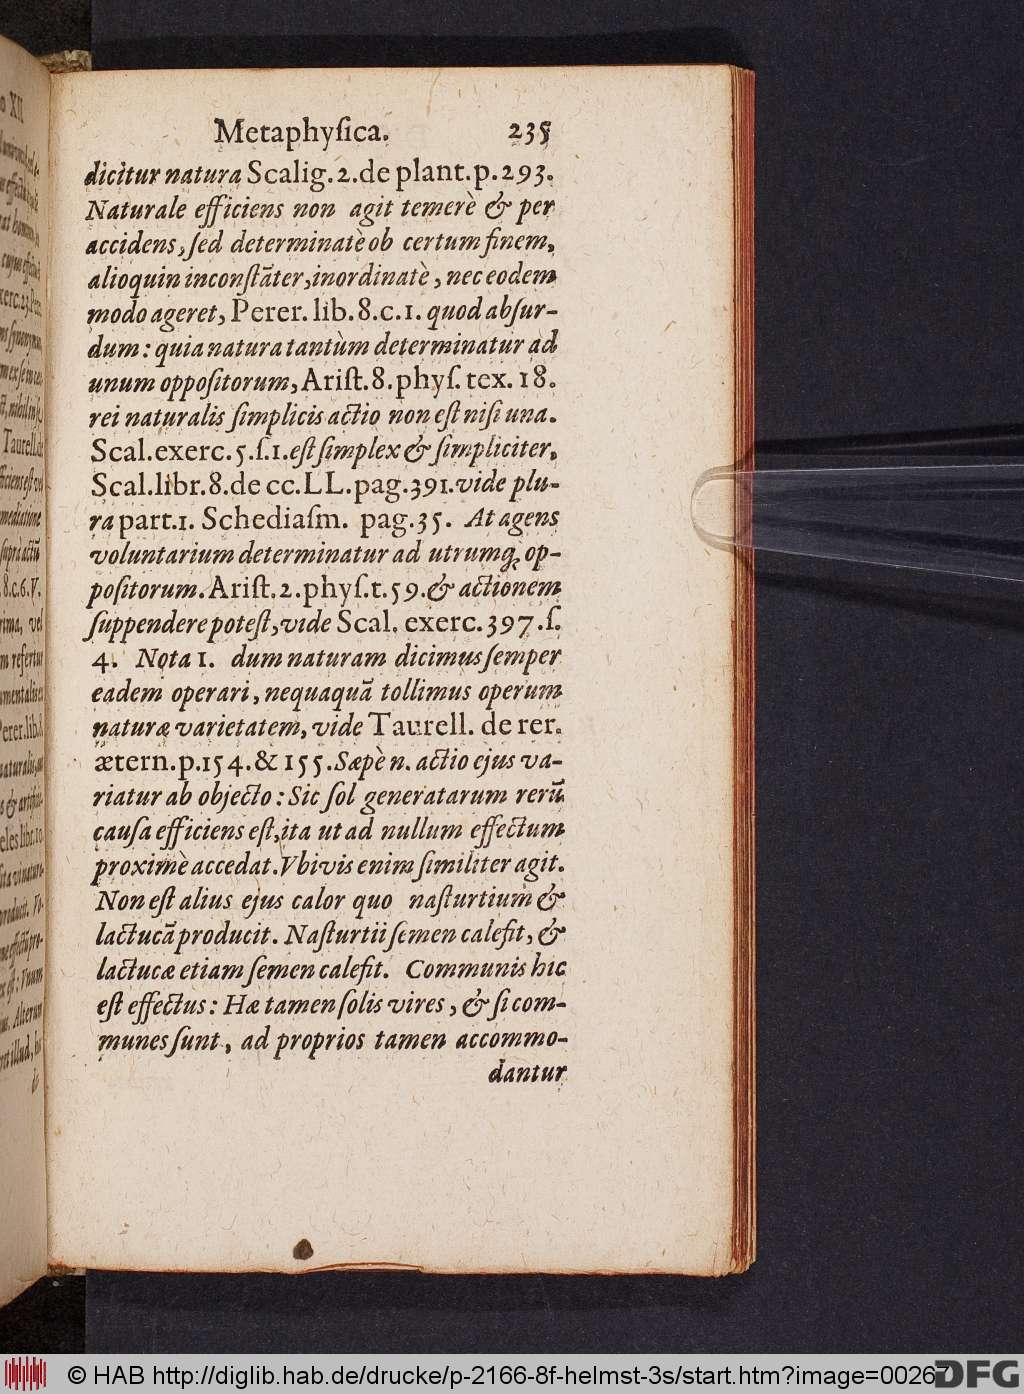 Metaphyſica. 235
dicitur natura Scalig. 2. de plant. p. 293.
Naturale efficiens non agit temerè & per
accidens, ſed determinatè ob certum finem,
alioquin inconſtāter, inordinatè, nec eodem
modo ageret, Perer. lib. 8. c. 1. quod abſur-
dum: quia natura tantùm determinatur ad
unum oppoſitorum, Ariſt. 8. phyſ. tex. 18.
rei naturalis ſimplicis actio non eſt niſi una.
Scal. exerc. 5. ſ. 1. eſt ſimplex & ſimpliciter,
Scal. libr. 8. de cc. LL. pag. 391. vide plu-
ra part. 1. Schediaſm. pag. 35. At agens
voluntarium determinatur ad utrumq́ꝫ op-
poſitorum. Ariſt. 2. phyſ. t. 59. & actionem
ſuppendere poteſt, vide Scal. exerc. 397. ſ.
4. Nota 1. dum naturam dicimus ſemper
eadem operari, nequaquā tollimus operum
naturæ varietatem, vide Taurell. de rer.
ætern. p. 154. & 155. Sæpè n. actio ejus va-
riatur ab objecto: Sic ſol generatarum rerū
cauſa efficiens eſt, ita ut ad nullum effectum
proximè accedat. Vbivis enim ſimiliter agit.
Non eſt alius ejus calor quo naſturtium &
lactucā producit. Naſturtii ſemen calefit, &
lactucæ etiam ſemen calefit. Communis hic
eſt effectus: Hæ tamen ſolis vires, & ſi com-
munes ſunt, ad proprios tamen accommo-
dantur
© HAB http://diglib.hab.de/drucke/p-2166-8f-helmst-3s/start.htm?image=00267
DFG